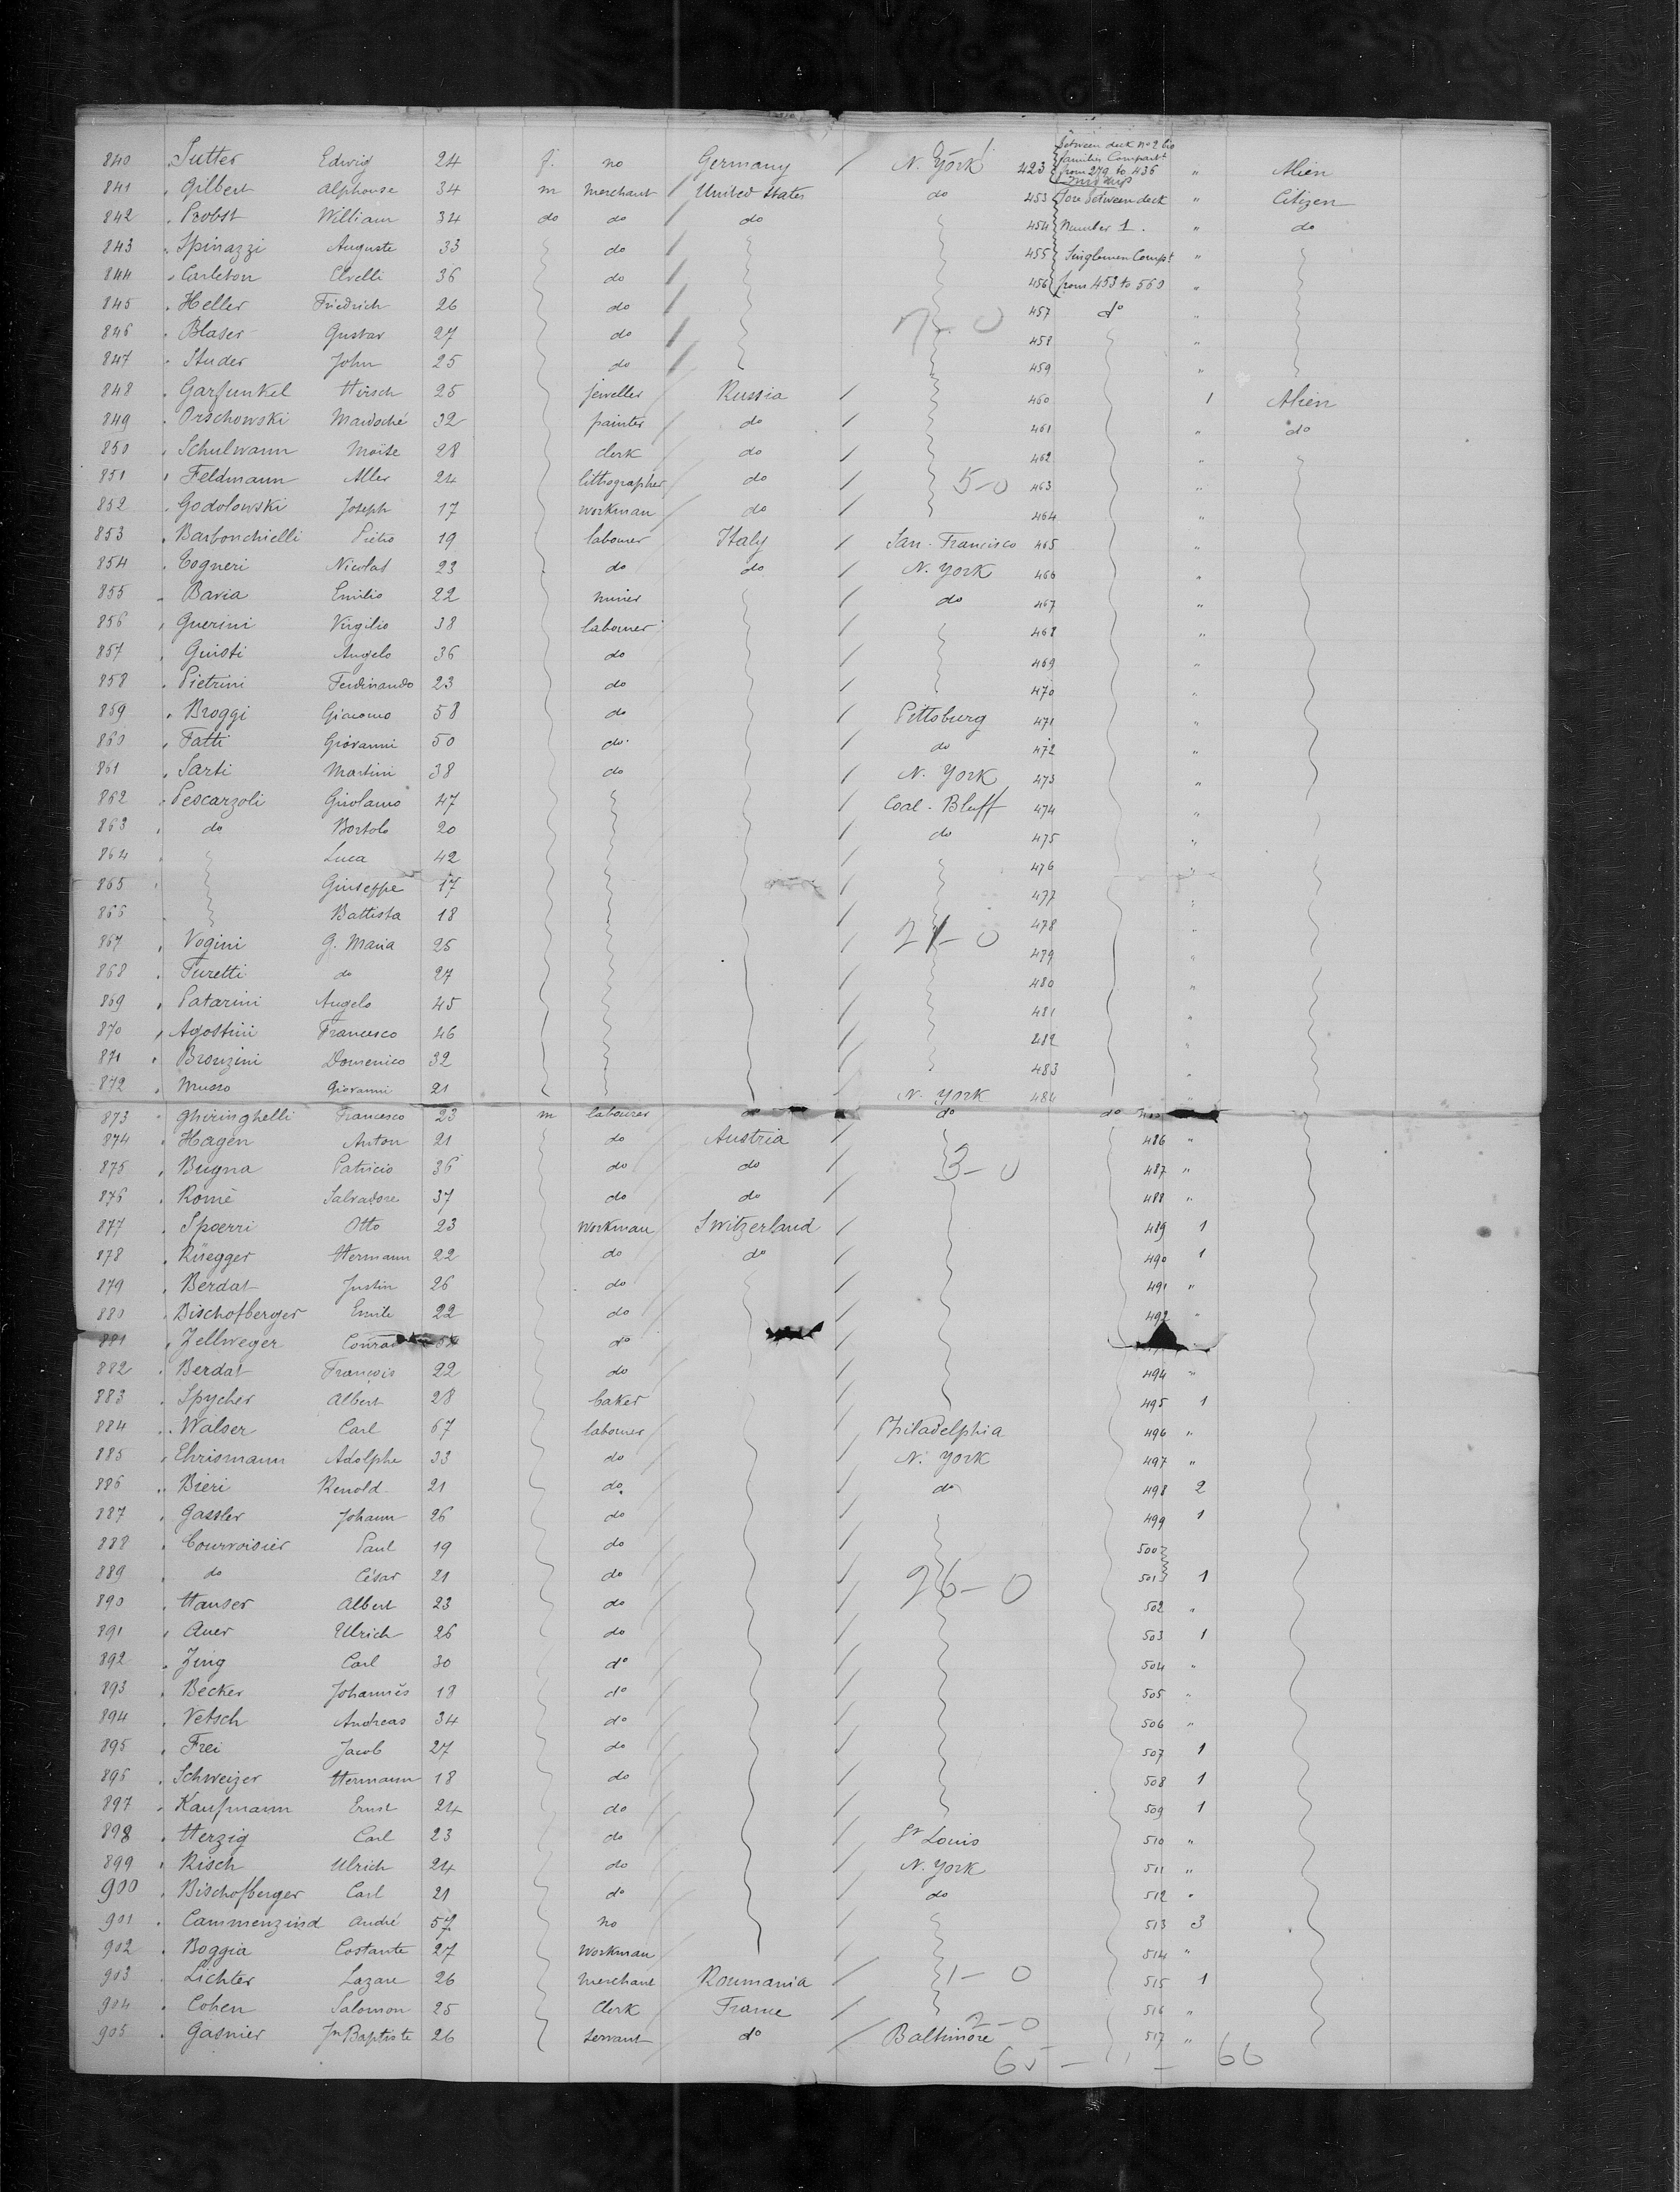 Between deck No 2 bis
840 Sutter Edwig 24 f. no Germany / N. York 423 families Compart<sup>t</sup> from 279 to 436 " Alien
841 " Gilbert Alphonse 34 m merchant / United States do 453 Fore between deck " Citizen
842 " Probst William 34 do do / do 454 Number 1. " do
843 " Spinazzi Auguste 33 do / 455 Singlemen Comp<sup>t</sup> "
844 " Carleton 36 do / 456 from 453 to 560 "
845 " Heller Friedrich 26 do / 457 d° "
846 " Blaser Gustav 27 do / 7-0 458 "
847 " Studer John 25 do / 459 "
848 " Garfunkel Hirsch 25 jeweller Russia / 460 1 Alien
849 " Orschowski 32 painter do / 461 " do
850 " Schulwann Moïse 28 clerk do / 462 "
851 " Feldmann Aller 24 lithographer do / 5-0 463 "
852 " Godolowski Joseph 17 workman do / 464 "
853 " Barbonchielli Pietro 19 labourer Italy / San-Francisco 465 "
854 " Togneri Nicolas 23 do do / N. York 466 "
855 " Bavia Emilio 22 miner / do 467 "
856 " Guerini Virgilio 38 labourer / 468 "
857 " Guisti Angelo 36 do / 469 "
858 " Pietrini Ferdinando 23 do / 470 "
859 " Broggi Giacomo 58 do / Pittsburg 471 "
860 " Fatti Giovanni 50 do / do 472 "
861 " Sarti Martini 38 do / N. York 473 "
862 " Pescarzoli Girolamo 47 / Coal-Bluff 474 "
863 " do Bortolo 20 / do 475 "
864 " Luca 42 / 476 "
865 " Giuseppe 17 / 477 "
866 " Battista 18 / 478 "
867 " Vogini G. Maria 25 / 21-0 479 "
868 " Turetti do 27 / 480 "
869 " Patarini Angelo 45 / 481 "
870 " Agostini Francesco 46 / 482 "
871 " Bronzini Domenico 32 / 483 "
872 " Musso Giovanni 21 / N. York 484 "
873 " Ghiringhelli Francesco 23 m labourer do do do
874 " Hagen Anton 21 do Austria / 486 "
875 " Bugna Patricio 36 do do / 3-0 487 "
876 " Romè Salvadore 37 do do / 488 "
877 " Spoerri Otto 23 workman Switzerland / 489 1
878 " Rüegger Hermann 22 do do / 490 1
879 " Berdat Justin 26 do / 491 "
880 " Bischofberger Emile 22 do / 492 "
881 " Zellweger d° /
882 " Berdat François 22 do / 494 "
883 " Spycher Albert 28 baker / 495 1
884 " Walser Carl 67 labourer / Philadelphia 496 "
885 " Ehrismann Adolphe 33 do / N. York 497 "
886 " Bieri Renold 21 do. / do 498 2
887 " Gassler Johann 26 do / 499 1
888 " Courvoisier Paul 19 do / 500
889 " do César 21 do / 26-0 501 1
890 " Hauser Albert 23 do / 502 "
891 " Auer Ulrich 26 do / 503 1
892 " Zing Carl 30 d° / 504 "
893 " Becker Johannès 18 d° / 505 "
894 " Vetsch Andreas 34 d° / 506 "
895 " Frei Jacob 27 do / 507 1
896 " Schweizer Hermann 18 do / 508 1
897 " Kaufmann Ernst 24 do / 509 1
898 " Herzig Carl 23 do / S<sup>t</sup> Louis 510 "
899 " Risch Ulrich 24 do / N. York 511 "
900 " Bischofberger Carl 21 d° / do 512 "
901 " Cammenzind André 57 no / 513 3
902 " Boggia Costante 27 workman / 514 "
903 " Lichter Lazare 26 merchant Roumania / 1-0 515 1
904 " Cohen Salomon 25 Clerk France / 516 "
905 " Gasnier Jn Baptiste 26 servant d° / 2-0 Baltimore 517 "
65 - " - 66